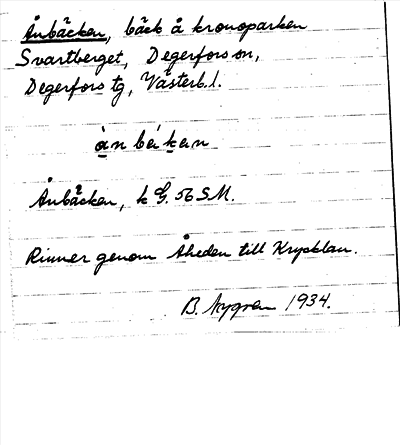 Ånbäcken, bäck å kronoparken
Svartberget, Degerfors sn,
Degerfors tg, Västerb.l.
Ånbäcken, k G. 56 SM.
Rinner genom Åheden till Krycklan.
B. Nygren 1934.